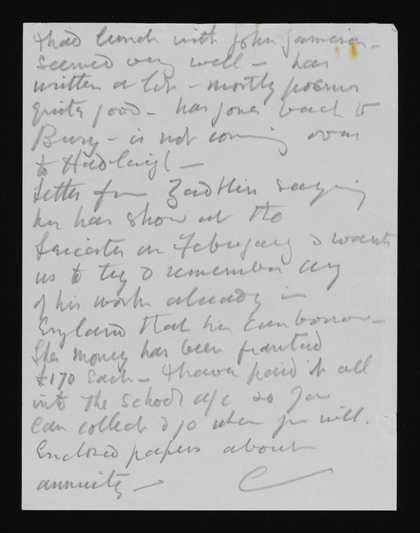 I had lunch with John Jameson -
seemed very well - has
written a lot - mostly poems
quite good - has gone back to
Bury - is not coming over
to Hadleigh -
Letter from Zadkin saying
he has show at the
Leicester in February & wants
us to try & remember any
of his work already in
England that he can borrow -
The money has been granted
£170 each - I have paid it all
into the School a/c so you
can collect when you will.
Enclosed papers about
annuity -
C